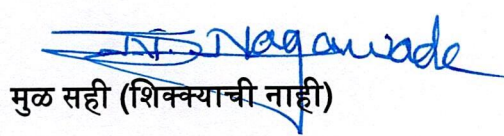 Nagawade
मुळ सही (शिक्क्याची नाही)